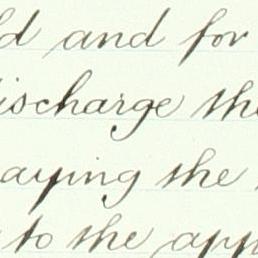 d and for
ischarge the
aying the
to the app